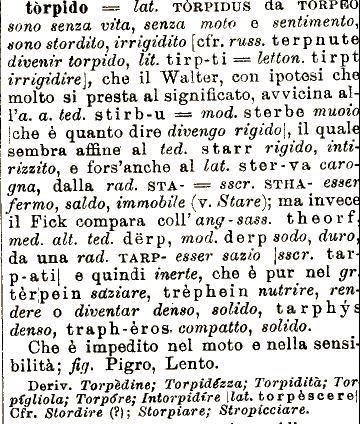 tòrpido = lat. TÒRPIDUS da TORPÈO
sono senza vita, senza moto e sentimento,
sono stordito, irrigidito [cfr. russ. terpnute
divenir torpido, lit. tirp-ti = letton. tirpt
irrigidire], che il Walter, con ipotesi che
molto si presta al significato, avvicina al-
l'a. a. ted. stirb-u = mod. sterbe muoio
|che è quanto dire divengo rigido|, il quale
sembra affine al ted. starr rigido, inti-
rizzito, e fors'anche al lat. ster-va caro-
gna, dalla rad. STA- = sscr. STHA- esser
fermo, saldo, immobile (v. Stare); ma invece
il Fick compara coll'ang-sass. theorf,
med. alt. ted. dërp, mod. derp sodo, duro,
da una rad. TARP- esser sazio |sscr. tar-
p-ati| e quindi inerte, che è pur nel gr.
tèrpein saziare, trèphein nutrire, ren-
dere o diventar denso, solido, tarphýs
denso, traph-èros compatto, solido.
Che è impedito nel moto e nella sensi-
bilità; fig. Pigro, Lento.
Deriv. Torpèdine; Torpidézza; Torpidità; Tor-
pigliola; Torpóre; Intorpidíre |lat. torpèscere|
Cfr. Stordire (?); Storpiare; Stropicciare.